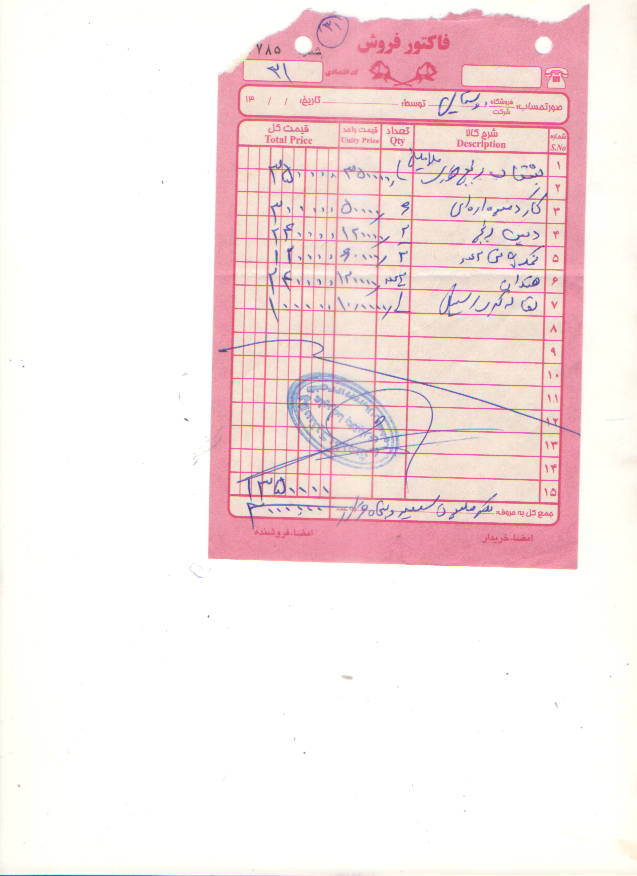 ۳۱
فاکتور فروش
۷۸۵
کد اقتصادی ۳۱
صورتحساب: فروشگاه شرکت توسط: تاریخ: / / ۱۳
شماره S.No شرح کالا Description تعداد Qty قیمت واحد Unity Price قیمت کل Total Price
۱ بشقاب ۳۵۰۰۰۰ ۳۵۰۰۰۰
۲
۳ کارد میوه اره‌ای ۶ ۵۰۰۰۰ ۳۰۰۰۰۰
۴ ۲ ۱۲۰۰۰۰ ۲۴۰۰۰۰
۵ نمکپاش ۲ ۶۰۰۰۰ ۱۲۰۰۰۰
۶ ۲۴۰۰۰۰
۷ ۱ ۱۰۰۰۰۰ ۱۰۰۰۰۰
۸
۹
۱۰
۱۱
۱۲
۱۳
۱۴
۱۵ ۱۳۵۰۰۰۰
جمع کل به حروف: یک میلیون سیصد و پنجاه هزار
امضاء خریدار امضاء فروشنده